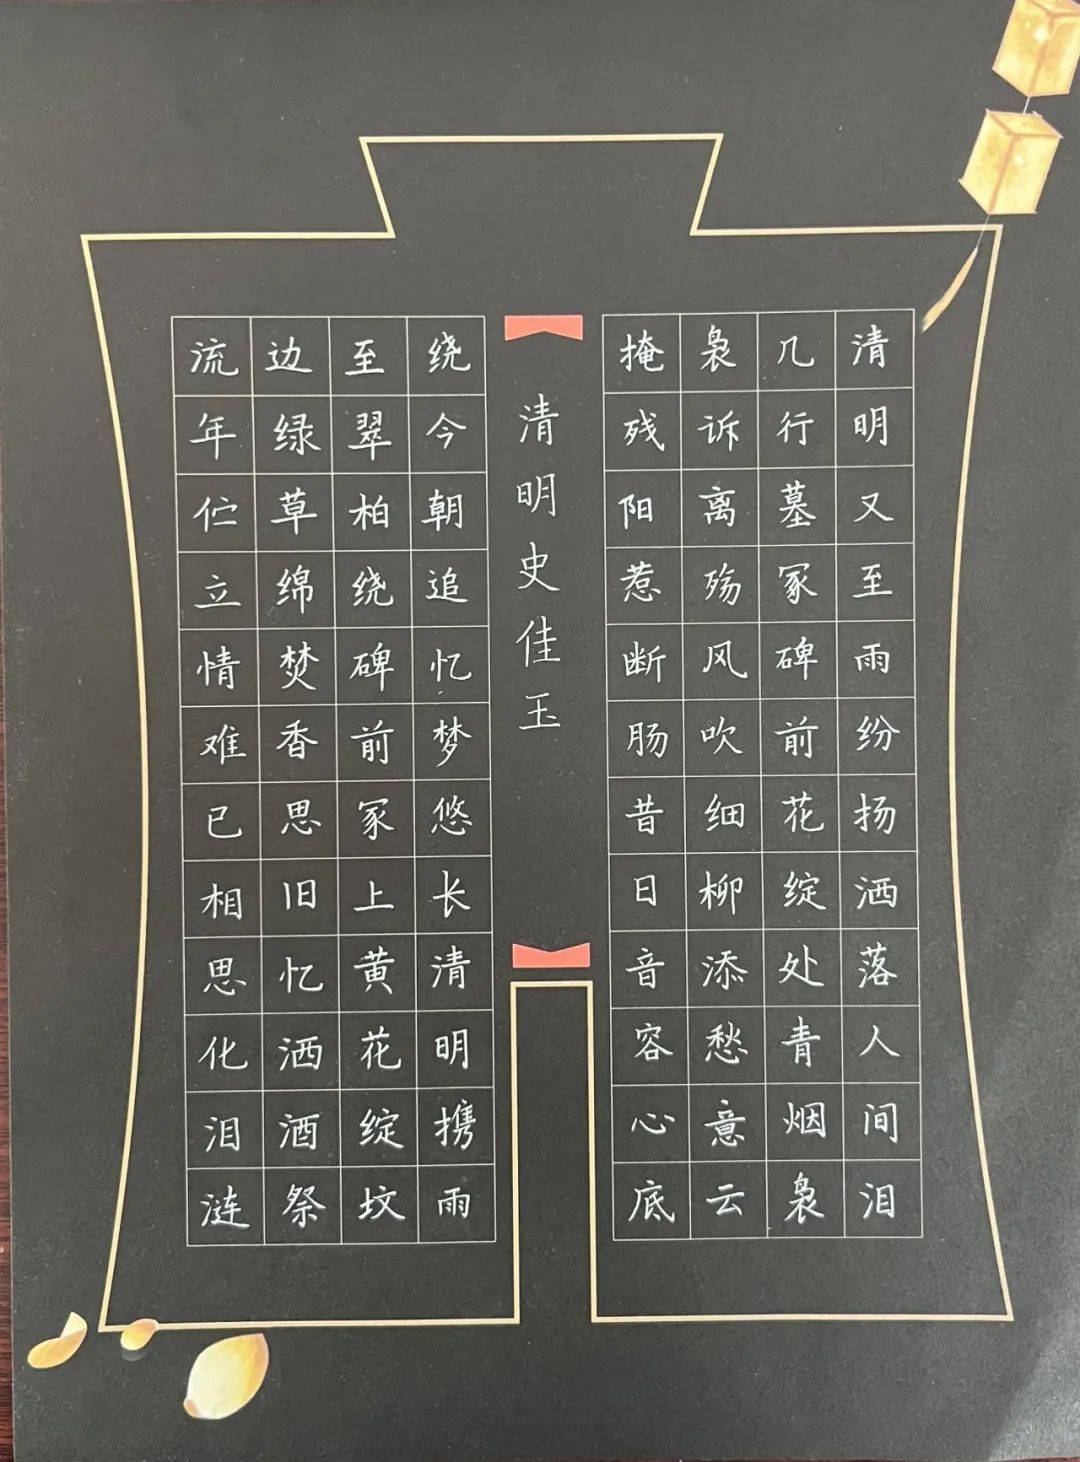 清明又至雨纷扬洒落人间泪
几行墓冢碑前花绽处青烟袅
袅诉离殇风吹细柳添愁意云
掩残阳惹断肠昔日音容心底
清明史佳玉
绕今朝追忆梦悠长清明携雨
至翠柏绕碑前冢上黄花绽坟
边绿草绵焚香思旧忆洒酒祭
流年伫立情难已相思化泪涟